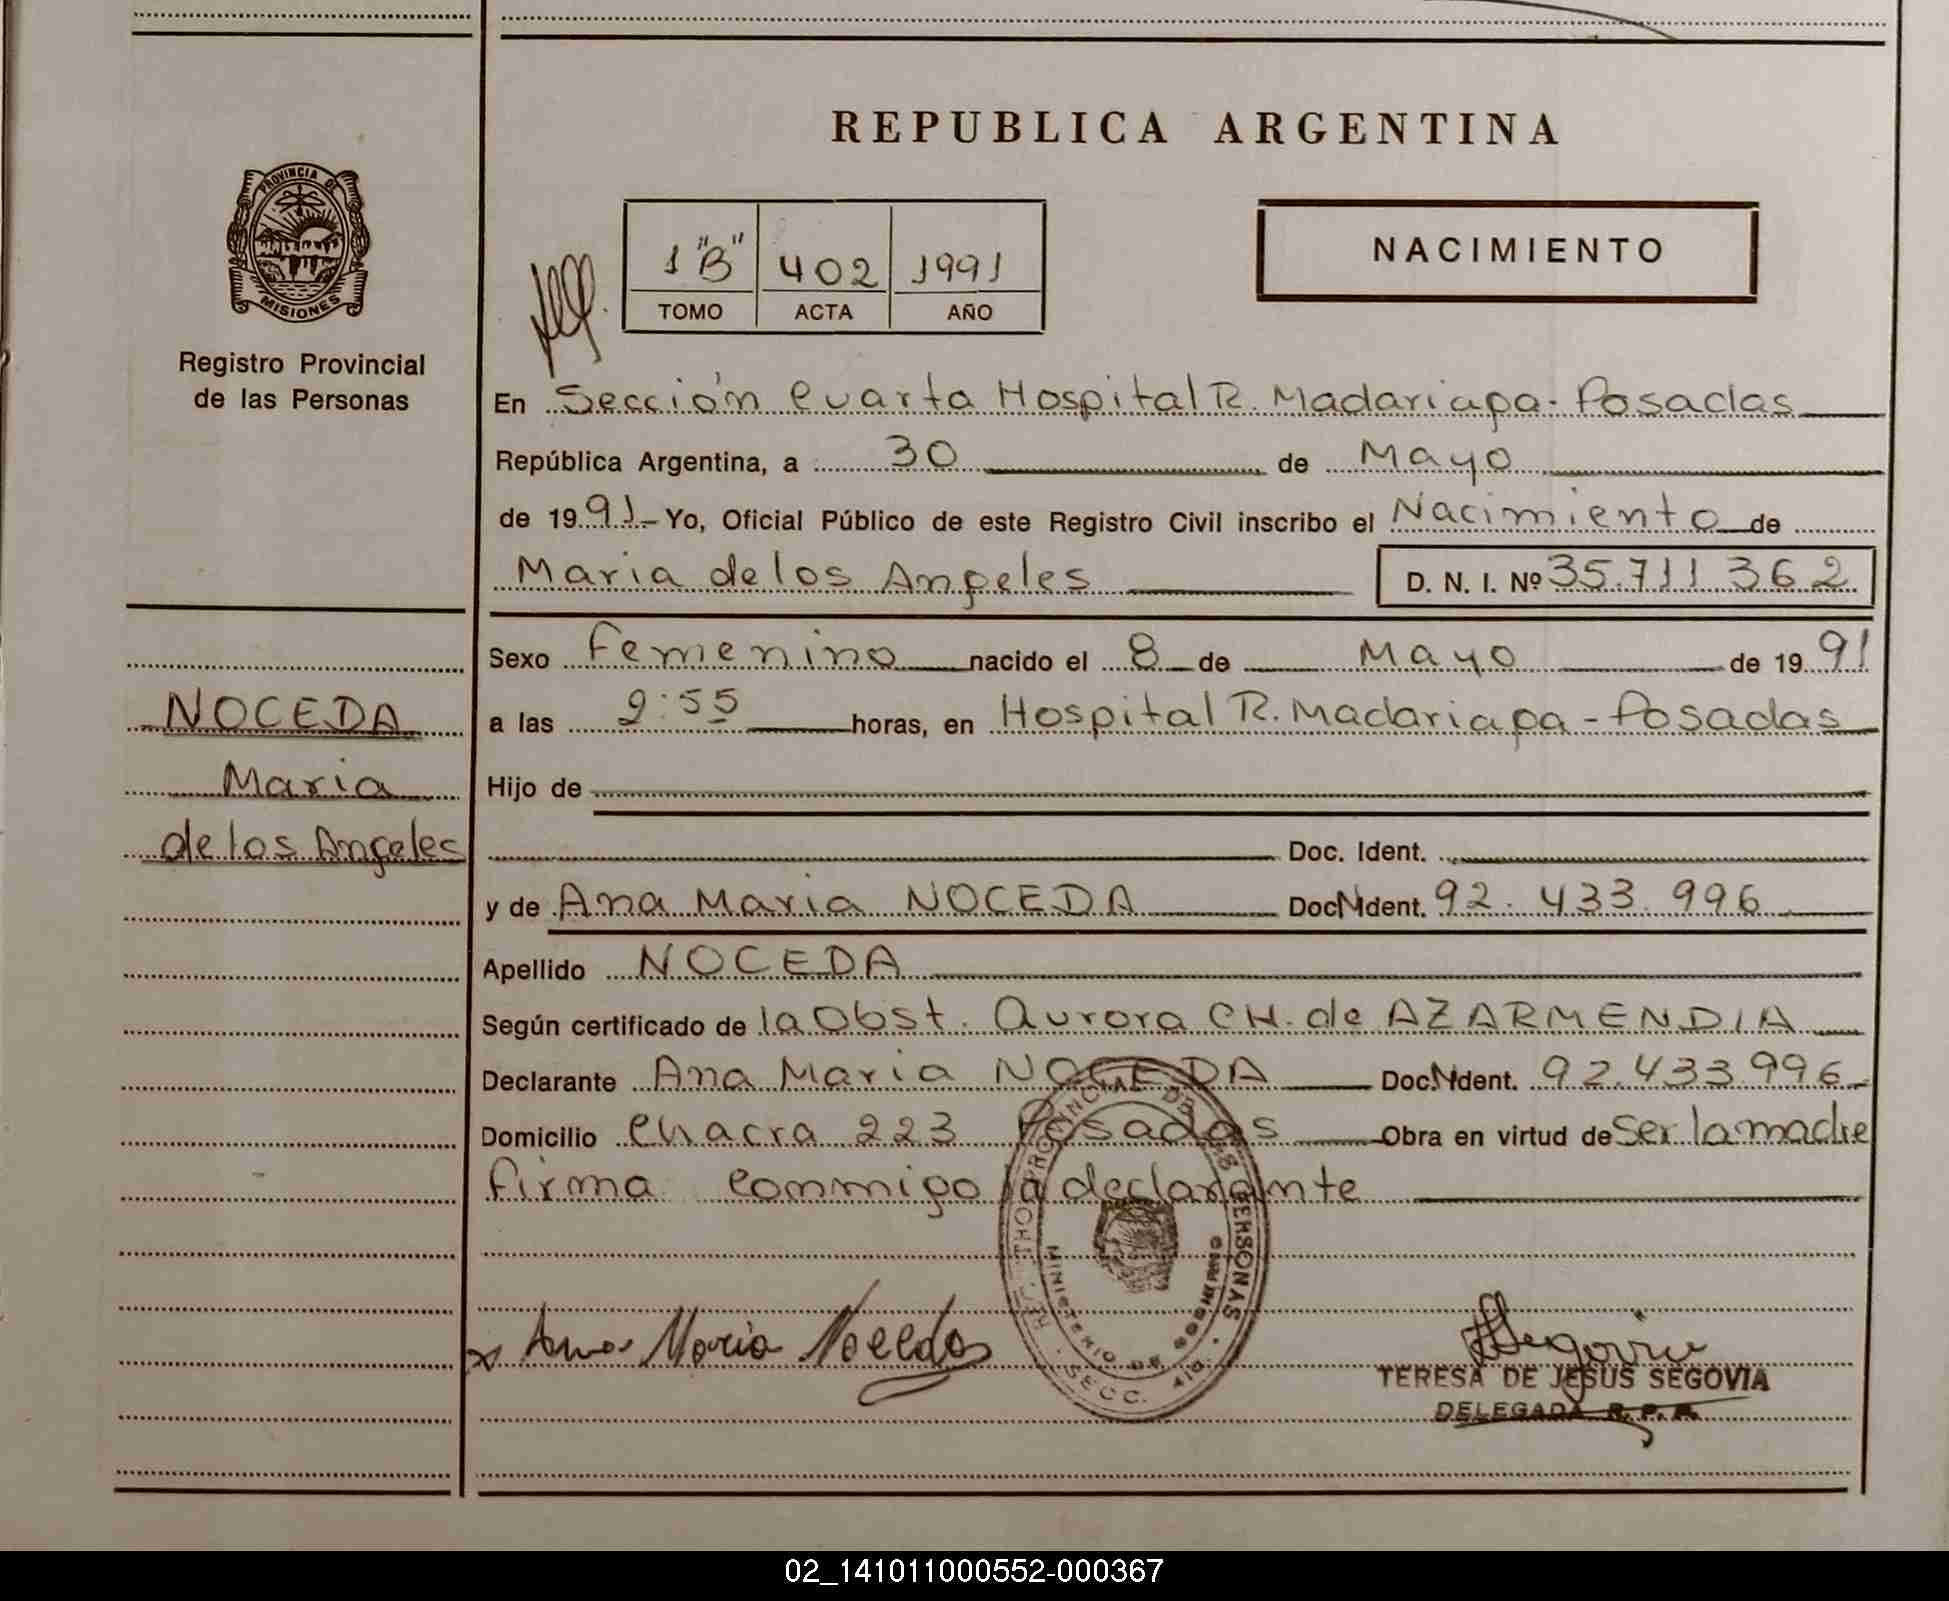 REPUBLICA ARGENTINA
PROVINCIA DE
MISIONES
Registro Provincial
de las Personas
1 "B" 402 1991
TOMO ACTA AÑO
NACIMIENTO
En Sección Cuarta Hospital R. Madariaga - Posadas
República Argentina, a 30 de Mayo
de 1991 - Yo, Oficial Público de este Registro Civil inscribo el Nacimiento de
Maria de los Angeles D. N. I. Nº 35.711.362
Sexo Femenino nacido el 8 de Mayo de 1991
NOCEDA
Maria
de los Angeles
a las 9:55 horas, en Hospital R. Madariaga - Posadas
Hijo de
Doc. Ident.
y de Ana Maria NOCEDA Doc. Ident. 92.433.996
Apellido NOCEDA
Según certificado de la Obst. Aurora CH. de AZARMENDIA
Declarante Ana Maria NOCEDA Doc. Ident. 92.433.996
Domicilio Chacra 223 Posadas Obra en virtud de ser la madre
firma conmigo la declarante
PROVINCIAL DE LAS PERSONAS
MINISTERIO DE GOBIERNO
SECC. 4ta.
Ana Maria Noceda
Segovia
TERESA DE JESUS SEGOVIA
DELEGADA R. P. P.
02_141011000552-000367